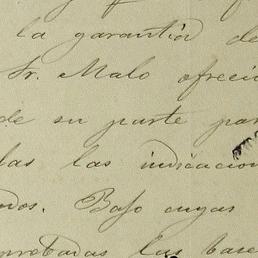 la garantía de
Sr. Malo ofreci
de su parte par
las las indicacion
dos. Bajo cuyas
probadas las base